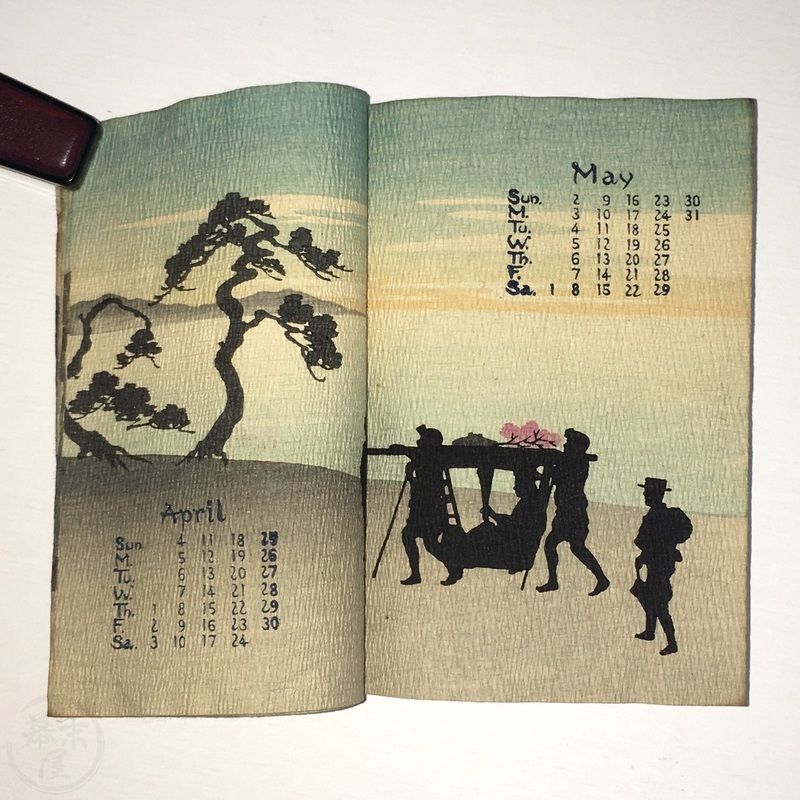 April
Sun. 4 11 18 25
M. 5 12 19 26
Tu. 6 13 20 27
W. 7 14 21 28
Th. 1 8 15 22 29
F. 2 9 16 23 30
Sa. 3 10 17 24
May
Sun. 2 9 16 23 30
M. 3 10 17 24 31
Tu. 4 11 18 25
W. 5 12 19 26
Th. 6 13 20 27
F. 7 14 21 28
Sa. 1 8 15 22 29